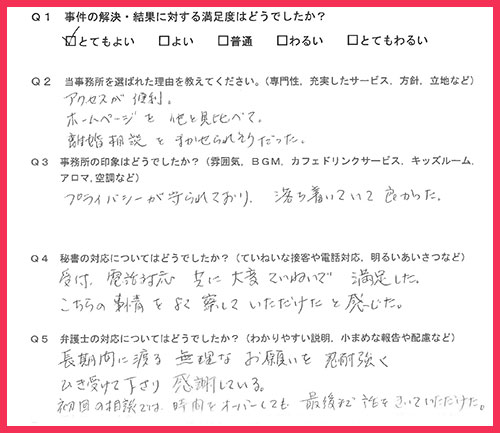 Q1 事件の解決・結果に対する満足度はどうでしたか？
☑とてもよい □よい □普通 □わるい □とてもわるい
Q2 当事務所を選ばれた理由を教えてください。（専門性，充実したサービス，方針，立地など）
アクセスが便利。
ホームページを他と見比べて。
離婚相談をまかせられそうだった。
Q3 事務所の印象はどうでしたか？（雰囲気，BGM，カフェドリンクサービス，キッズルーム，
アロマ，空調など）
プライバシーが守られており，落ち着いていて良かった。
Q4 秘書の対応についてはどうでしたか？（ていねいな接客や電話対応，明るいあいさつなど）
受付，電話対応共に大変ていねいで満足した。
こちらの事情をよく察していただけたと感じた。
Q5 弁護士の対応についてはどうでしたか？（わかりやすい説明，小まめな報告や配慮など）
長期間に渡る無理なお願いを忍耐強く
ひき受けて下さり感謝している。
初回の相談では，時間をオーバーしても最後まで話をきいていただけた。